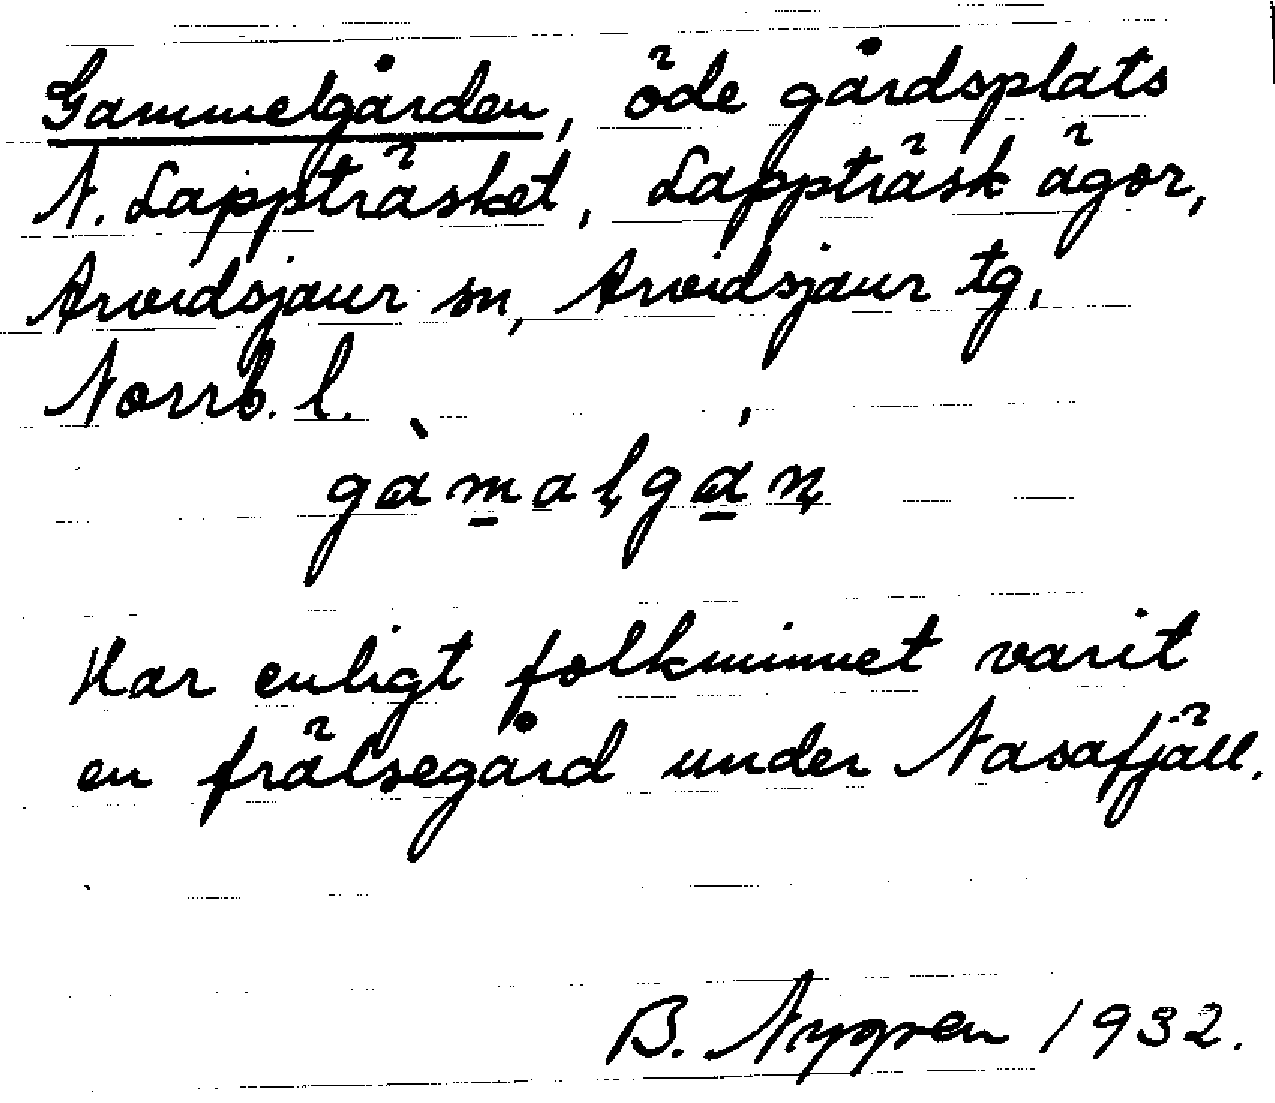 Gammelgården, öde gårdsplats
N. Lappträsket, Lappträsk ägor,
Arvidsjaur sn, Arvidsjaur tg,
Norrb. l.
Har enligt folkminnet varit
en frälsegård under Nasafjäll.
B. Nygren 1932.